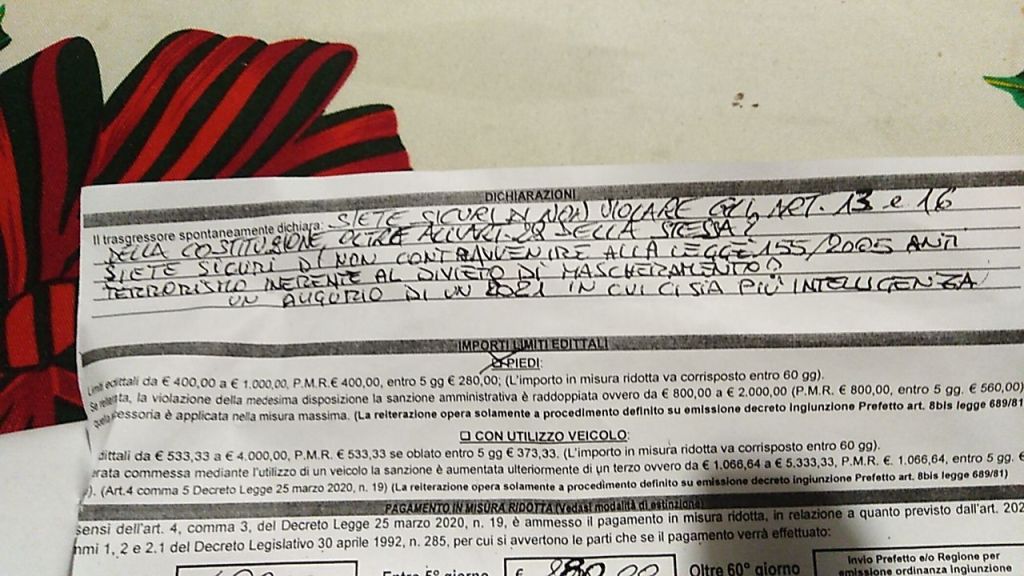 DICHIARAZIONI
Il trasgressore spontaneamente dichiara: SIETE SICURI DI NON VIOLARE GLI ART. 13 e 16
DELLA COSTITUZIONE, OLTRE ALL'ART. 28 DELLA STESSA?
SIETE SICURI DI NON CONTRAVVENIRE ALLA LEGGE 155/2005 ANTI
TERRORISMO INERENTE AL DIVIETO DI MASCHERAMENTO?
UN AUGURIO DI UN 2021 IN CUI CI SIA PIÙ INTELLIGENZA
IMPORTI LIMITI EDITTALI
PIEDI:
Limiti edittali da € 400,00 a € 1.000,00, P.M.R.€ 400,00, entro 5 gg € 280,00; (L'importo in misura ridotta va corrisposto entro 60 gg).
Se reiterata, la violazione della medesima disposizione la sanzione amministrativa è raddoppiata ovvero da € 800,00 a € 2.000,00 (P.M.R. € 800,00, entro 5 gg. € 560,00)
quella accessoria è applicata nella misura massima. (La reiterazione opera solamente a procedimento definito su emissione decreto Ingiunzione Prefetto art. 8bis legge 689/81
☐ CON UTILIZZO VEICOLO:
dittali da € 533,33 a € 4.000,00, P.M.R. € 533,33 se oblato entro 5 gg € 373,33. (L'importo in misura ridotta va corrisposto entro 60 gg).
erata commessa mediante l'utilizzo di un veicolo la sanzione è aumentata ulteriormente di un terzo ovvero da € 1.066,64 a € 5.333,33, P.M.R. €. 1.066,64, entro 5 gg. €
). (Art.4 comma 5 Decreto Legge 25 marzo 2020, n. 19) (La reiterazione opera solamente a procedimento definito su emissione decreto ingiunzione Prefetto art. 8bis legge 689/81)
PAGAMENTO IN MISURA RIDOTTA (Vedasi modalità di estinzione)
sensi dell'art. 4, comma 3, del Decreto Legge 25 marzo 2020, n. 19, è ammesso il pagamento in misura ridotta, in relazione a quanto previsto dall'art. 202
mmi 1, 2 e 2.1 del Decreto Legislativo 30 aprile 1992, n. 285, per cui si avvertono le parti che se il pagamento verrà effettuato:
Entro 5° giorno € 280,00 Oltre 60° giorno
Invio Prefetto e/o Regione per
emissione ordinanza Ingiunzione